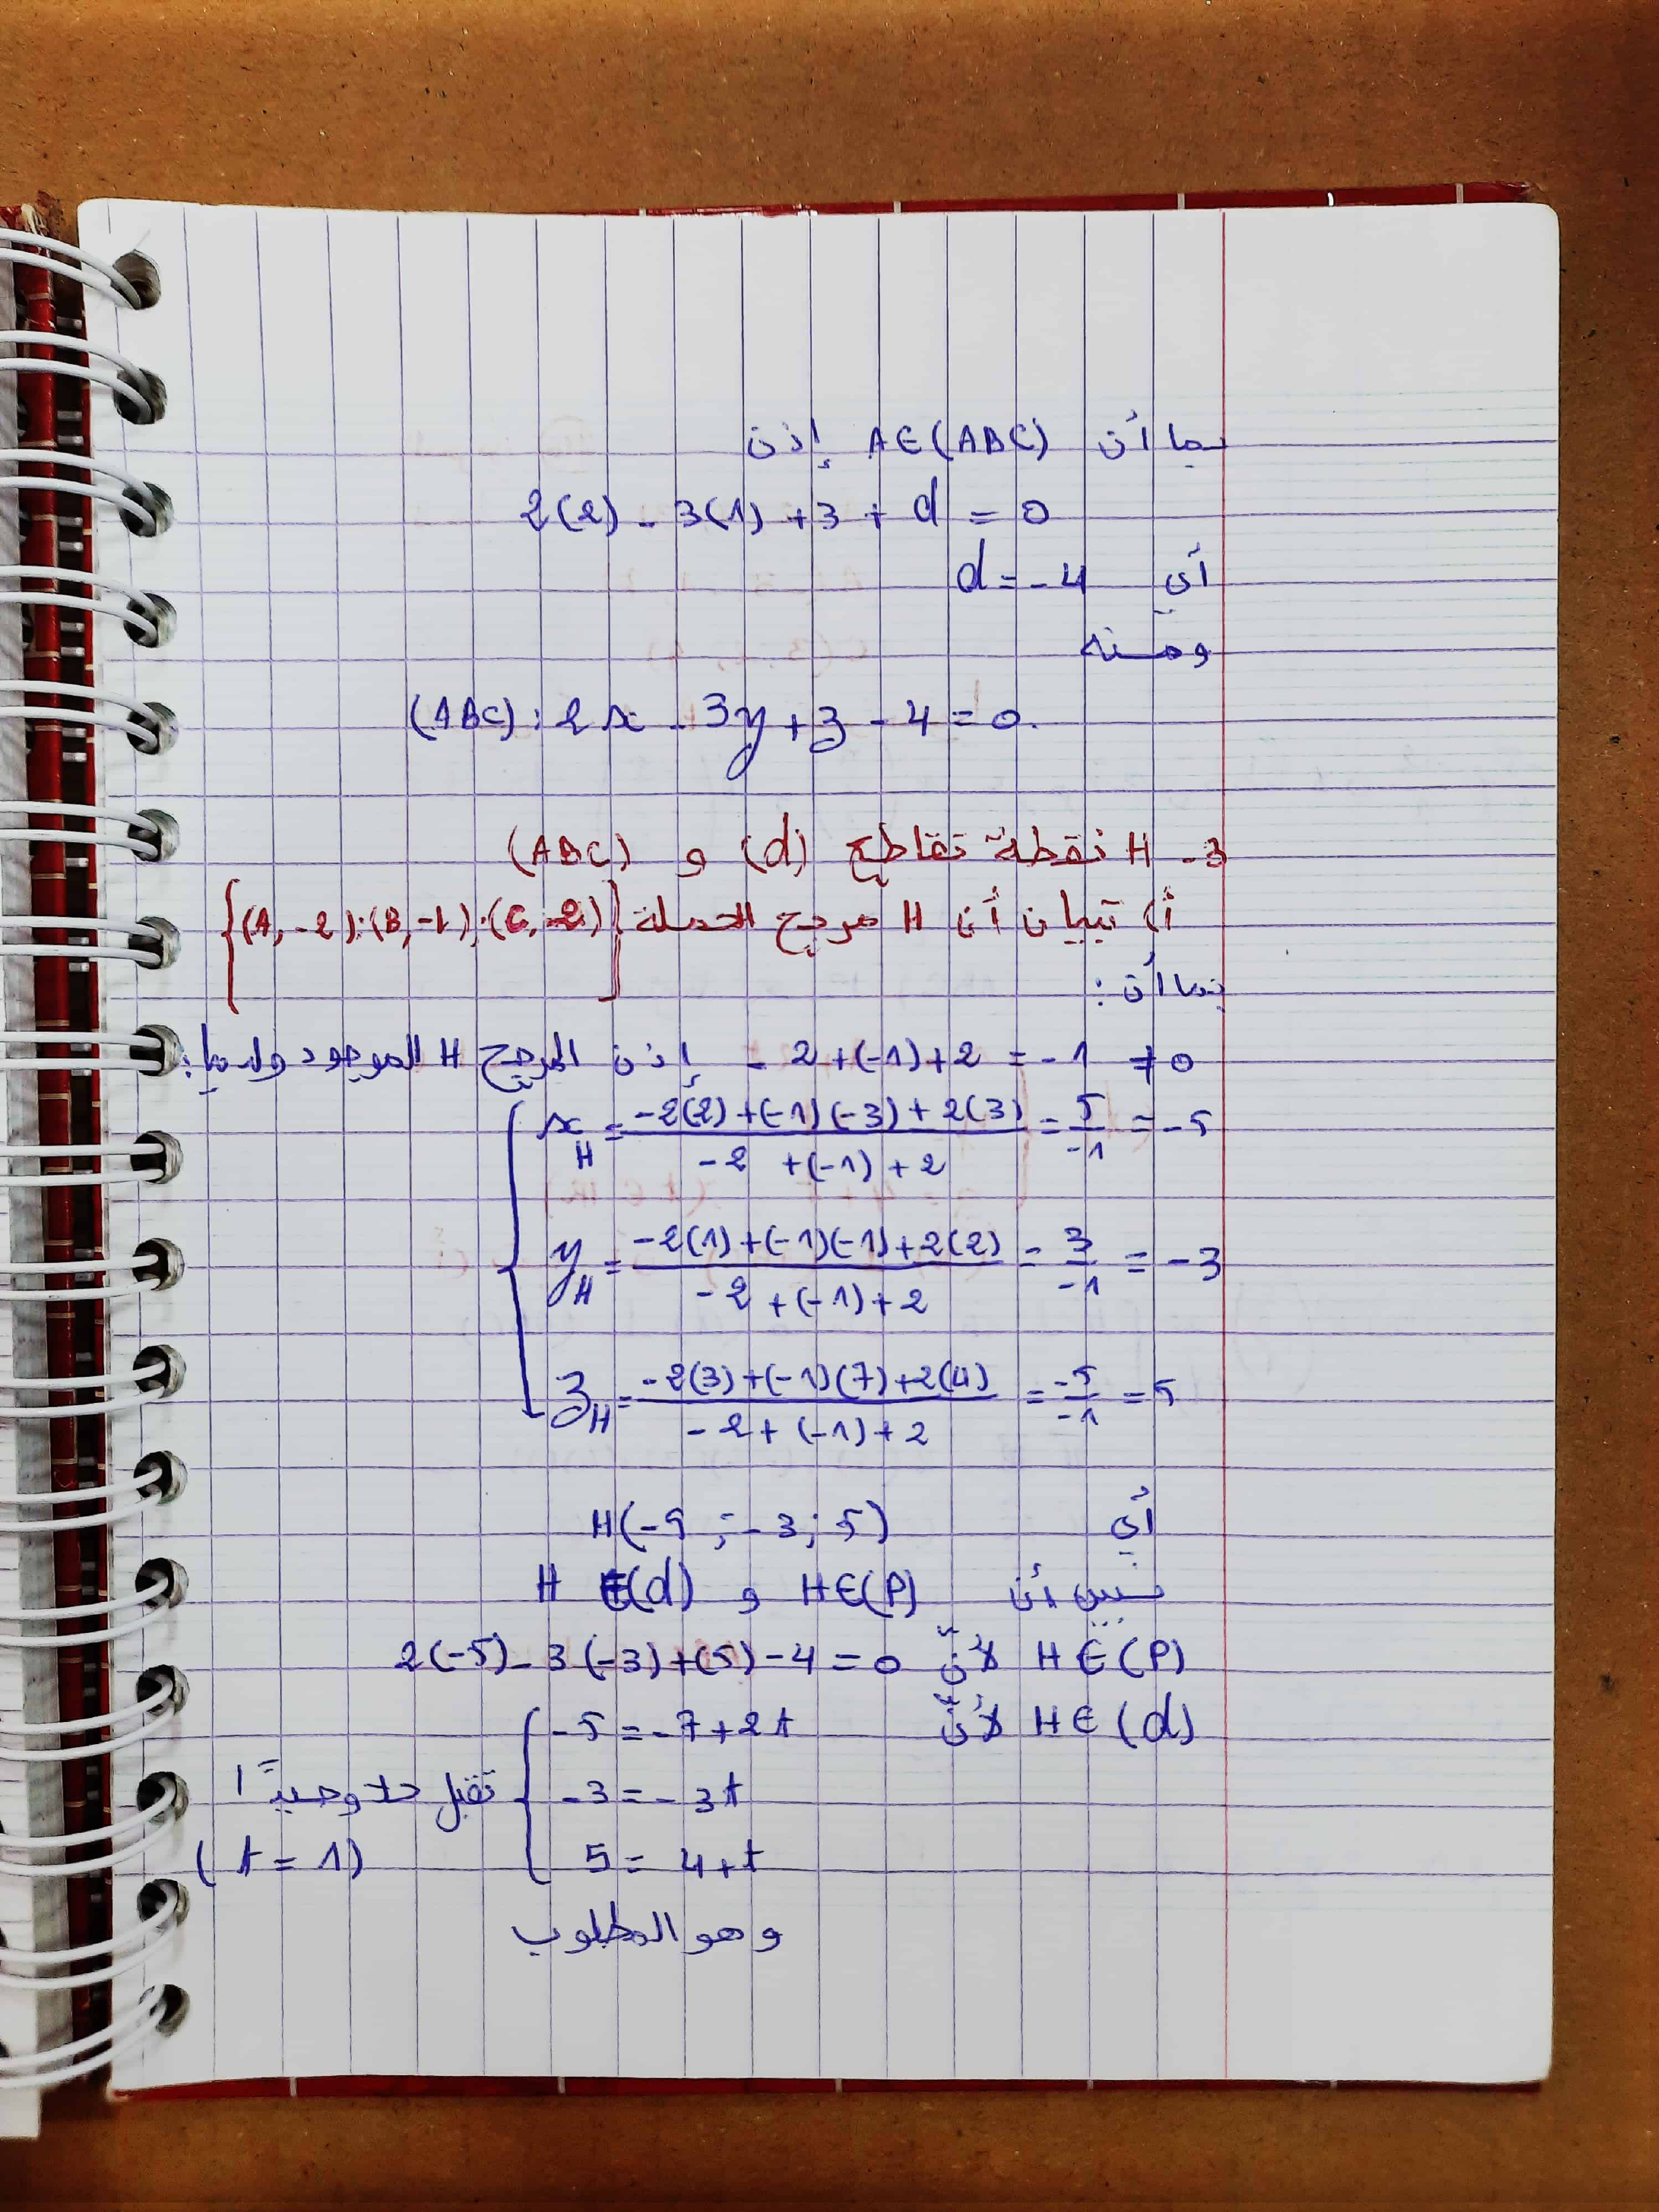 بما أن A∈(ABC) إذن
2(2) - 3(1) + 3 + d = 0
أي d = -4
ومنه
(ABC): 2x - 3y + z - 4 = 0.
3 - H نقطة تقاطع (d) و (ABC)
أ) تبيان أن H مرجح الجملة {(A, -2); (B, -1); (C, 2)}
بما أن:
-2 + (-1) + 2 = -1 ≠ 0 إذن المرجح H موجود ولدينا:
x_H = (-2(2) + (-1)(-3) + 2(3)) / (-2 + (-1) + 2) = 5/-1 = -5
y_H = (-2(1) + (-1)(-1) + 2(2)) / (-2 + (-1) + 2) = 3/-1 = -3
z_H = (-2(3) + (-1)(7) + 2(4)) / (-2 + (-1) + 2) = -5/-1 = 5
أي H(-5; -3; 5)
نبين أن H∈(P) و H∈(d)
H∈(P) لأنّ 2(-5) - 3(-3) + (5) - 4 = 0
H∈(d) لأنّ { -5 = -7 + 2t
-3 = -3t تقبل حلا وحيدًا
5 = 4 + t (t = 1)
وهو المطلوب